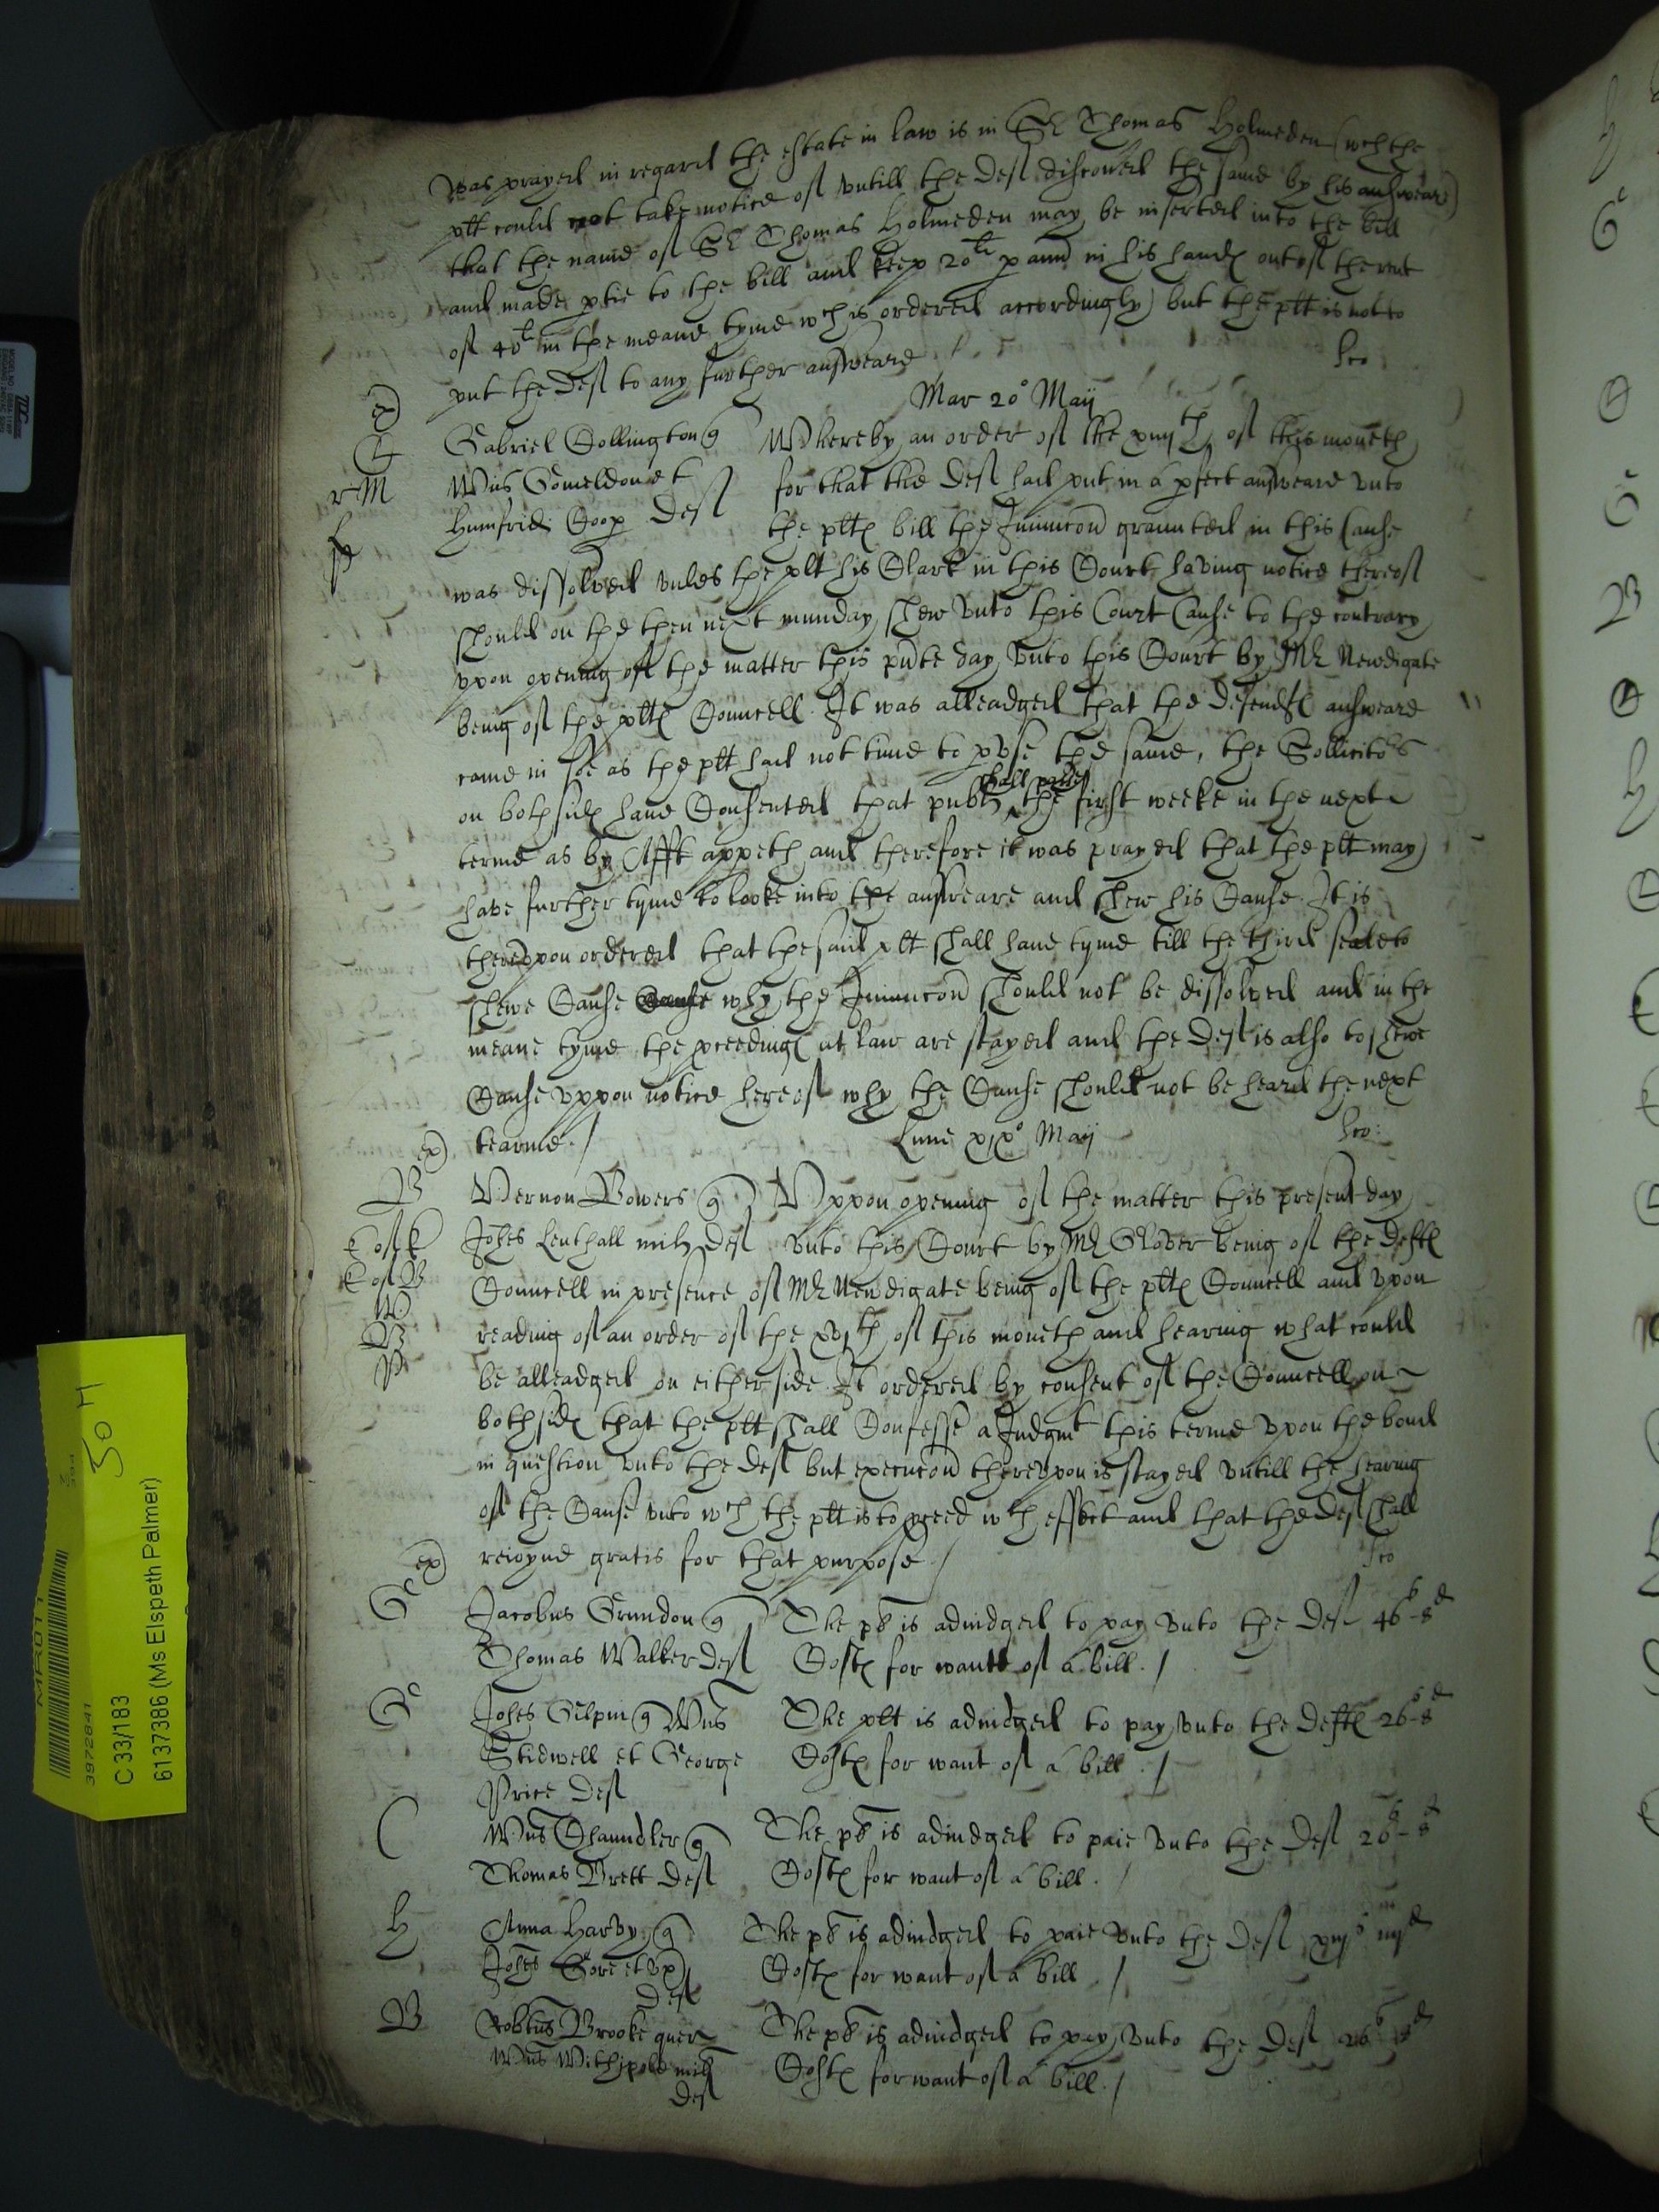 was prayed in regard the estate in law is in Sr Thomas Holmeden (wch the
plt could not take notice of vntill the def discoved the same by his answeare)
that the name of Sr Thomas Holmeden may be inserted into the bill
and made ptie to the bill and keep 20li p ann in his hands out of the rent
of 40li in the meane tyme wch is ordered accordingly but the plt is not to
put the def to any further answeare
Mar 20o Maij
Gabriel Collington q
Wms Someldon et
Humfrid Def
Whereby an order of the xiiijth of this moneth
for that the Def had put in a pfect answeare vnto
the plts bill the Iniuncon graunted in this Cause
was dissolved vnles the plt his Clark in this Court having notice thereof
should on the then next munday shew vnto this Court Cause to the contrary
vpon opening of the matter this pnte day vnto this Court by Mr Newdigate
being of the plts Councell It was alleadged that the defendts answeare
came in soe as the plt had not time to pvse the same, the Sollicitors
on both sides have Consented that publ shall passe the first weeke in the next
terme as by Afft appeth and therefore it was prayed that the plt may
have further tyme to looke into the answeare and shew his Cause. It is
therevpon ordered that the said plt shall have tyme till the third seale to
shewe Cause why the Iniuncon should not be dissolved and in the
meane tyme the pceedings at law are stayed and the Def is also to shewe
Cause vppon notice hereof why the Cause should not be heard the next
tearme. /
Lune xixo Maij
Vernon Bowers q
Johes Lenthall mil Def
Vppon opening of the matter this present day
vnto this Court by Mr Glover being of the Defts
Councell in presence of Mr Newdigate being of the plts Councell and vpon
reading of an order of the xvjth of this moneth and hearing what could
be alleadged on either side. It ordered by consent of the Councell on
both sides that the plt shall Confesse a Judgmt this terme vpon the bond
in question vnto the Def but execucon therevpon is stayed vntill the hearing
of the Cause vnto wch the plt is to pceed wth effect and that the Def shall
reioyne gratis for that purpose /
Jacobus Grundon q
Thomas Walker Def
The plt is adiudged to pay vnto the Def 46s-8d
Costs for wante of a bill. /
Johes Gilpin q Wms
Stidwell et George
Price Def
The plt is adiudged to pay vnto the Defts 26s-8d
Costs for want of a bill. /
Wms Chaundler q
Thomas Brett Def
The plt is adiudged to paie vnto the Def 26s-8d
Costs for want of a bill. /
Anna Harvy q
Johes Gore et vx
Def
The plt is adiudged to paie vnto the Def xiijs iiijd
Costs for want of a bill /
Robtus Brooke quer
Wms Withipole mil
Def
The plt is adiudged to pay vnto the Def 26s 8d
Costs for want of a bill. /
30 H
3972841
C 33/183
6137386 (Ms Elspeth Palmer)